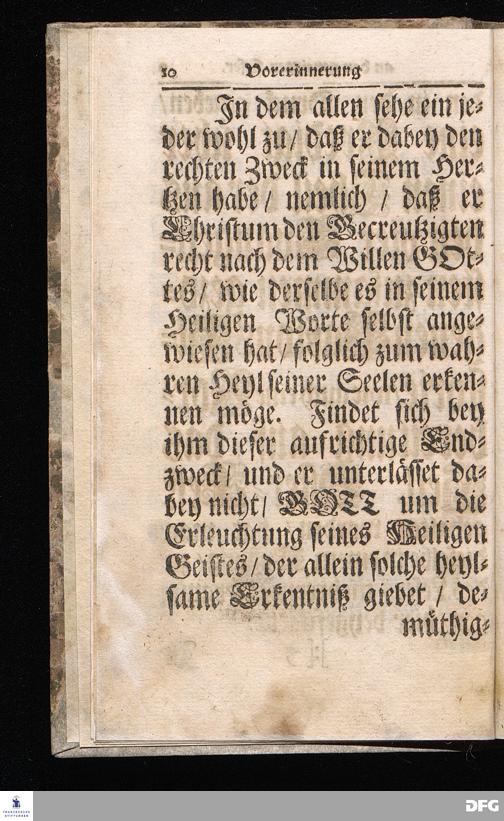 10 Vorerinnerung
In dem allen sehe ein je⸗
der wohl zu / daß er dabey den
rechten Zweck in seinem Her⸗
tzen habe / nemlich / daß er
Christum den Gecreutzigten
recht nach dem Willen GOt⸗
tes / wie derselbe es in seinem
Heiligen Worte selbst ange⸗
wiesen hat / folglich zum wah⸗
ren Heyl seiner Seelen erken⸗
nen möge. Findet sich bey
ihm dieser aufrichtige End⸗
zweck / und er unterlässet da⸗
bey nicht / GOTT um die
Erleuchtung seines Heiligen
Geistes / der allein solche heyl⸗
same Erkentniß giebet / de⸗
müthig⸗
FRANCKESCHE
STIFTUNGEN
DFG